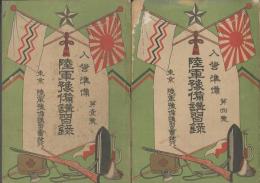 入営準備
陸軍豫備講習録
第壹巻
東京 陸軍豫備講習會発行
入営準備
陸軍豫備講習録
第四巻
東京 陸軍豫備講習會発行